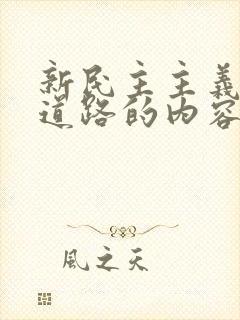 新民主主義
道路的内容
風之天